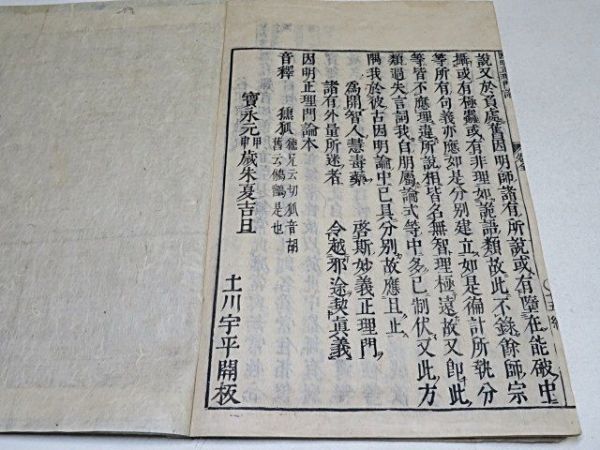 說又於負處舊因明師諸有所說或有墮在能破中
攝或有極麤或有非理如詭語類故此不錄餘師宗
等所有句義亦應如是分別建立如是徧計所執分
等皆不應理違所說相皆名無智理極遠故又即此
類過失言詞我自朋屬論式等中多已制伏又此方
隅我於彼古因明論中已具分別故應且止
爲開智人慧毒藥 啓斯妙義正理門
諸有外量所迷者 令越邪途契眞義
因明正理門論本
音釋
鵂狐 舊云鵂鶹是也
寶永元甲申歲朱夏吉旦
土川宇平開板